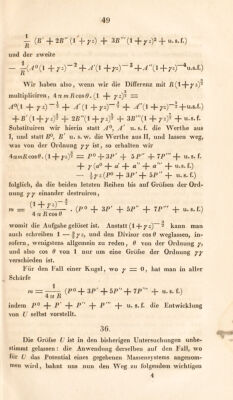 49
1/R (B' + 2B''(1+γz) + 3B'''(1+γz)² + u. s. f.)
und der zweite
− 1/R (A⁰(1+γz)⁻² + A'(1+γz)⁻³ + A''(1+γz)⁻⁴ u.s.f.)
Wir haben also, wenn wir die Differenz mit R(1+γz)
multipliciren, 4αmR cosθ.(1+γz) =
A⁰(1+γz) + A'(1+γz) + A''(1+γz) + u.s.f.
+ B'(1+γz) + 2B''(1+γz) + 3B'''(1+γz) u.s.f.
Substituiren wir hierin statt A⁰, A' u. s. f. die Werthe aus
I, und statt B⁰, B' u. s. w. die Werthe aus II, und lassen weg,
was von der Ordnung γγ ist, so erhalten wir
4αmR cosθ.(1+γz) = P⁰ + 3P' + 5P'' + 7P''' + u. s. f.
+ γ(a⁰ + a' + a'' + a''') + u. s. f.
γz(P⁰ + 3P' + 5P'' + u. s. f.
folglich, da die beiden letzten Reihen bis auf Größen der Ord-
nung γγ einander destruiren,
m = (1+γz) / 4αR cosθ . (P⁰ + 3P' + 5P'' + 7P''' + u. s. f.
womit die Aufgabe gelöset ist. Anstatt (1+γz) kann man
auch schreiben 1 − γz, und den Divisor cosθ weglassen, in-
sofern, wenigstens allgemein zu reden, θ von der Ordnung γ,
und also cosθ von 1 nur um eine Größe der Ordnung γγ
verschieden ist.
Für den Fall einer Kugel, wo γ = 0, hat man in aller
Schärfe
m = 1/4αR (P⁰ + 3P' + 5P'' + 7P''' + u. s. f.)
indem P⁰ + P' + P'' + P''' + u. s. f. die Entwicklung
von U selbst vorstellt.
36.
Die Größe U ist in den bisherigen Untersuchungen unbe-
stimmt gelassen: die Anwendung derselben auf den Fall, wo
für U das Potential eines gegebenen Massensystems angenom-
men wird, bahnt uns nun den Weg zu folgendem wichtigen
4